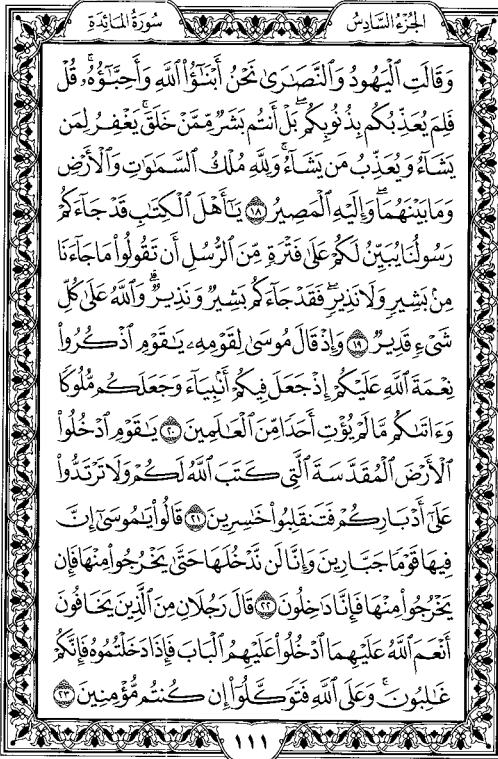 الجزء السادس
سورة المائدة
وَقَالَتِ ٱلْيَهُودُ وَٱلنَّصَـٰرَىٰ نَحْنُ أَبْنَـٰٓؤُا۟ ٱللَّهِ وَأَحِبَّـٰٓؤُهُۥ ۚ قُلْ
فَلِمَ يُعَذِّبُكُم بِذُنُوبِكُم ۖ بَلْ أَنتُم بَشَرٌ مِّمَّنْ خَلَقَ ۚ يَغْفِرُ لِمَن
يَشَآءُ وَيُعَذِّبُ مَن يَشَآءُ ۚ وَلِلَّهِ مُلْكُ ٱلسَّمَـٰوَٰتِ وَٱلْأَرْضِ
وَمَا بَيْنَهُمَا ۖ وَإِلَيْهِ ٱلْمَصِيرُ ١٨ يَـٰٓأَهْلَ ٱلْكِتَـٰبِ قَدْ جَآءَكُمْ
رَسُولُنَا يُبَيِّنُ لَكُمْ عَلَىٰ فَتْرَةٍ مِّنَ ٱلرُّسُلِ أَن تَقُولُوا۟ مَا جَآءَنَا
مِنۢ بَشِيرٍ وَلَا نَذِيرٍ ۖ فَقَدْ جَآءَكُم بَشِيرٌ وَنَذِيرٌ ۗ وَٱللَّهُ عَلَىٰ كُلِّ
شَىْءٍ قَدِيرٌ ١٩ وَإِذْ قَالَ مُوسَىٰ لِقَوْمِهِۦ يَـٰقَوْمِ ٱذْكُرُوا۟
نِعْمَةَ ٱللَّهِ عَلَيْكُمْ إِذْ جَعَلَ فِيكُمْ أَنۢبِيَآءَ وَجَعَلَكُم مُّلُوكًا
وَءَاتَىٰكُم مَّا لَمْ يُؤْتِ أَحَدًا مِّنَ ٱلْعَـٰلَمِينَ ٢٠ يَـٰقَوْمِ ٱدْخُلُوا۟
ٱلْأَرْضَ ٱلْمُقَدَّسَةَ ٱلَّتِى كَتَبَ ٱللَّهُ لَكُمْ وَلَا تَرْتَدُّوا۟
عَلَىٰٓ أَدْبَارِكُمْ فَتَنقَلِبُوا۟ خَـٰسِرِينَ ٢١ قَالُوا۟ يَـٰمُوسَىٰٓ إِنَّ
فِيهَا قَوْمًا جَبَّارِينَ وَإِنَّا لَن نَّدْخُلَهَا حَتَّىٰ يَخْرُجُوا۟ مِنْهَا فَإِن
يَخْرُجُوا۟ مِنْهَا فَإِنَّا دَٰخِلُونَ ٢٢ قَالَ رَجُلَانِ مِنَ ٱلَّذِينَ يَخَافُونَ
أَنْعَمَ ٱللَّهُ عَلَيْهِمَا ٱدْخُلُوا۟ عَلَيْهِمُ ٱلْبَابَ فَإِذَا دَخَلْتُمُوهُ فَإِنَّكُمْ
غَـٰلِبُونَ ۚ وَعَلَى ٱللَّهِ فَتَوَكَّلُوٓا۟ إِن كُنتُم مُّؤْمِنِينَ ٢٣
١١١